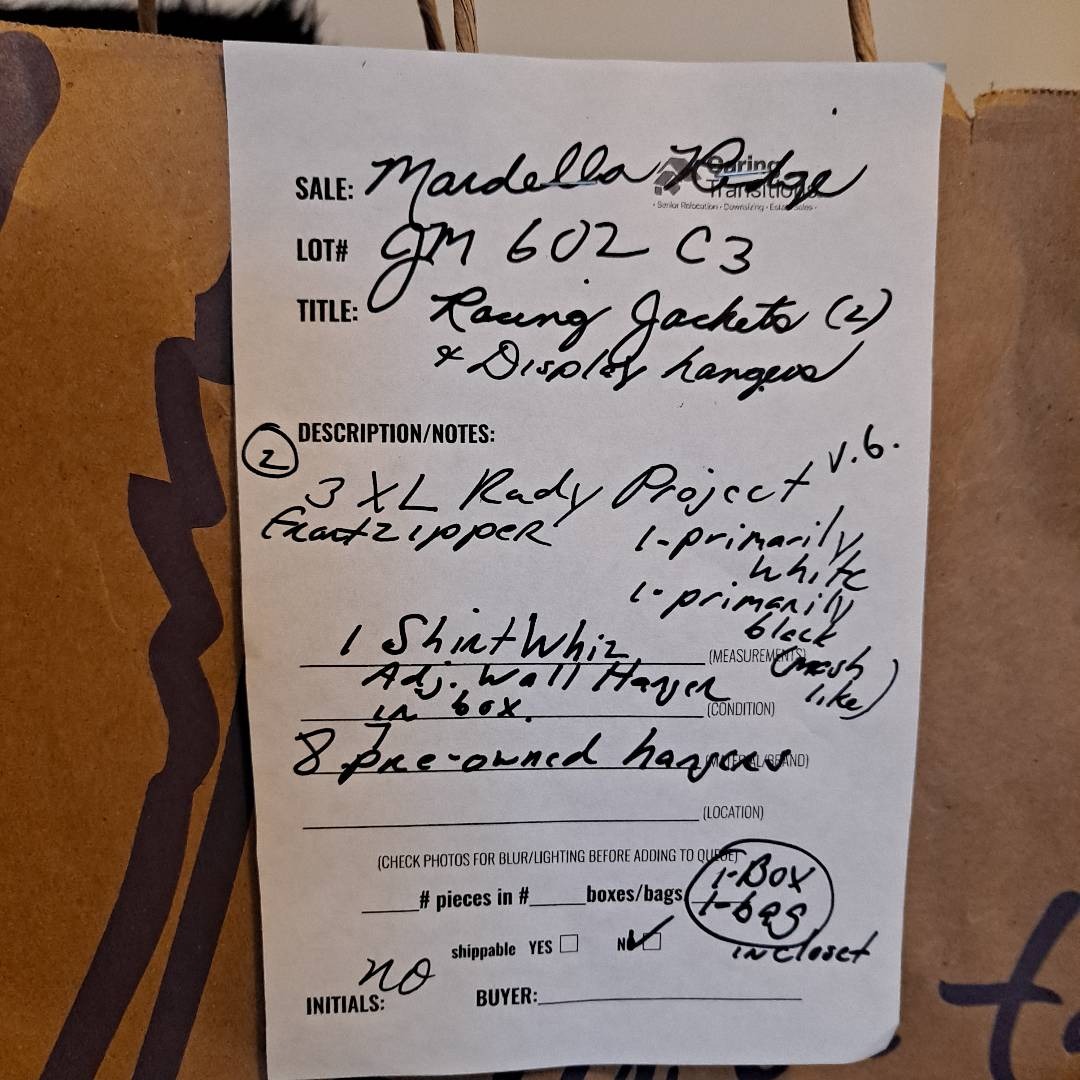 Caring
Transitions
• Senior Relocation • Downsizing • Estate Sales •
SALE: Mardella Ridge
LOT# JM 602 C3
TITLE: Racing Jackets (2)
& Display hangers
DESCRIPTION/NOTES:
2
3 XL Rady Project V.6.
Front zipper
1-primarily
white
1-primarily
black
(mesh
like)
1 Shirt Whiz (MEASUREMENTS)
Adj. Wall Hanger
in box. (CONDITION)
8 pre-owned hangers (MATERIAL/BRAND)
(LOCATION)
(CHECK PHOTOS FOR BLUR/LIGHTING BEFORE ADDING TO QUEUE)
# pieces in # boxes/bags 1-Box
1-bag
in closet
shippable YES NO
INITIALS: no BUYER: